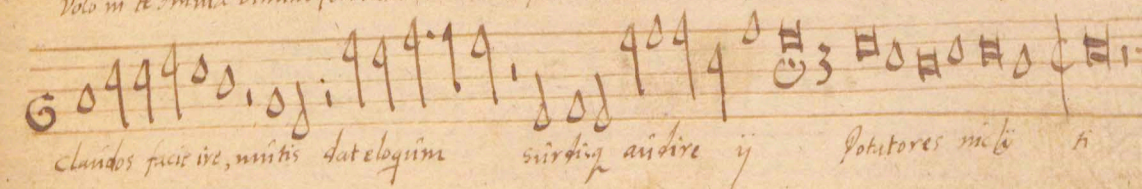 Volo in te
claudos facit ire, mutis dat eloquium surdisq audire ij Potatores incliti